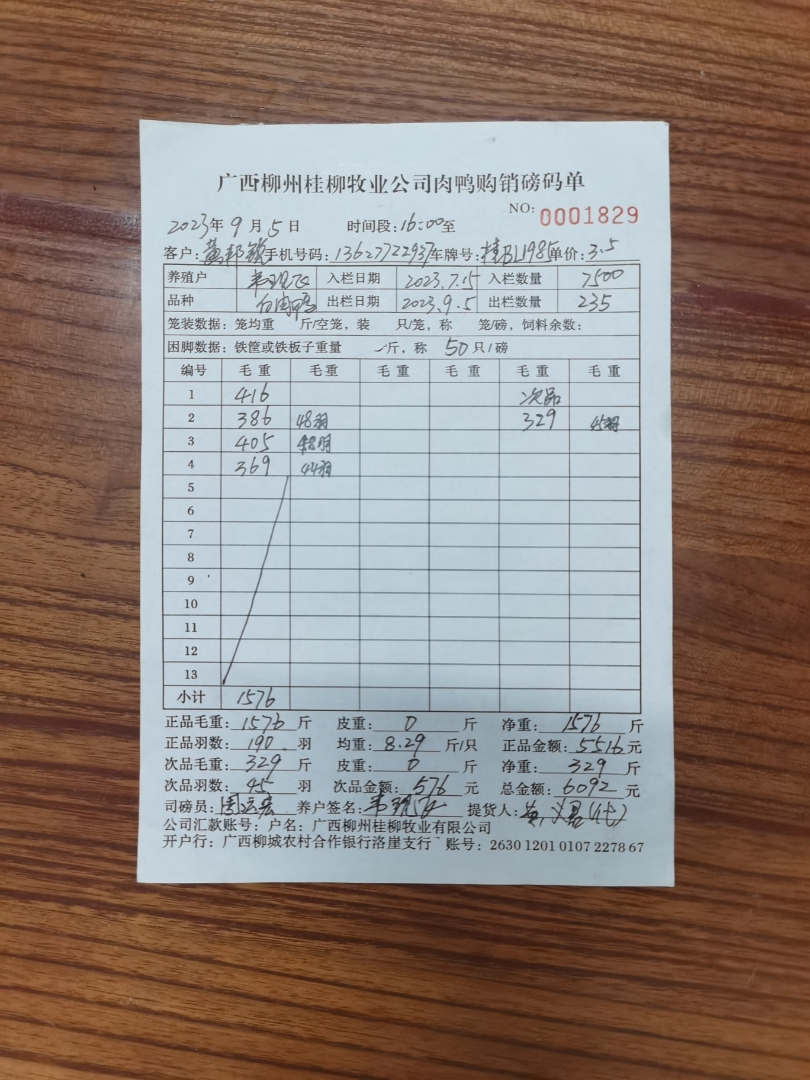 广西柳州桂柳牧业公司肉鸭购销磅码单
NO: 0001829
2023年 9 月 5 日 时间段: 16:00至
客户: 黄邦 手机号码: 13627722937 车牌号: 桂BL1985 单价: 3.5
养殖户 韦 入栏日期 2023.7.15 入栏数量 7500
品种 白肉鸭 出栏日期 2023.9.5 出栏数量 235
笼装数据: 笼均重 斤/空笼, 装 只/笼, 称 笼/磅, 饲料余数:
困脚数据: 铁筐或铁板子重量 斤, 称 50 只/磅
编号 毛重 毛重 毛重 毛重 毛重 毛重
1 416 次品
2 386 48羽 329 45羽
3 405 48羽
4 369 44羽
5
6
7
8
9
10
11
12
13
小计 1576
正品毛重: 1576 斤 皮重: 0 斤 净重: 1576 斤
正品羽数: 190 羽 均重: 8.29 斤/只 正品金额: 5516 元
次品毛重: 329 斤 皮重: 0 斤 净重: 329 斤
次品羽数: 45 羽 次品金额: 576 元 总金额: 6092 元
司磅员: 周运宏 养户签名: 韦 提货人: (代)
公司汇款账号: 户名: 广西柳州桂柳牧业有限公司
开户行: 广西柳城农村合作银行洛崖支行 账号: 2630 1201 0107 2278 67